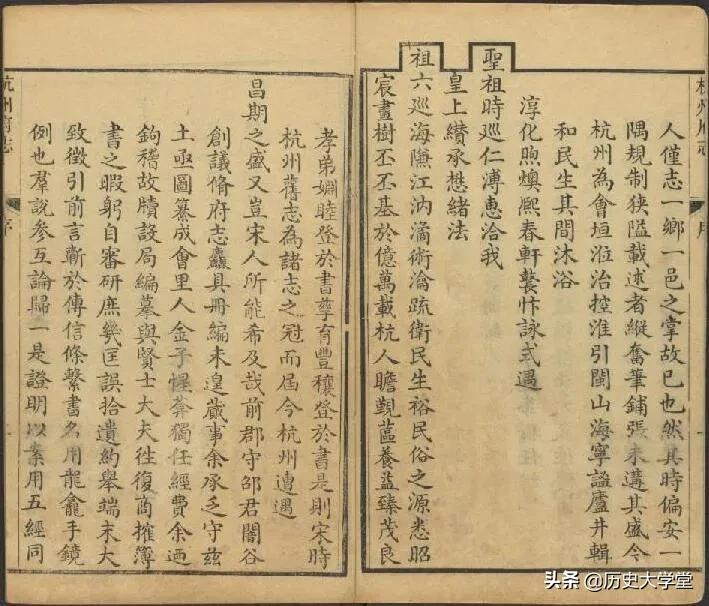 杭州府志
人僅志一鄉一邑之掌故已也然其時偏安一
隅規制狹隘載述者縱奮筆鋪張未遘其盛今
杭州為會垣涖治控淮引閩山海寧謐廬井輯
和民生其間沐浴
淳化煦燠熙春軒鼚忭詠式遇
聖祖時巡仁溥惠洽我
皇上纘承懋緒法
祖六巡海隒江汭潏術瀹疏衛民生裕民俗之源悉昭
宸畫樹丕丕基於億萬載杭人瞻覲蕰養益臻茂良
孝弟婣睦登於書孳育豐穰登於書是則宋時
杭州舊志為諸志之冠而屆今杭州遭遇
昌期之盛又豈宋人所能希及哉前郡守邵君闇谷
創議脩府志麤具冊編未遑蕆事余承乏守茲
土亟圖纂成會里人金子惺莽獨任經費余迺
鉤稽故牘設局編摹與賢士大夫徃復商搉簿
書之暇躬自審研庶幾匡誤拾遺約舉端末大
致徵引前言蘄於傳信條繫書名用龍龕手鏡
例也羣說參互論歸一是證明以案用五經同
杭州府志
序
頭条 @历史大学堂